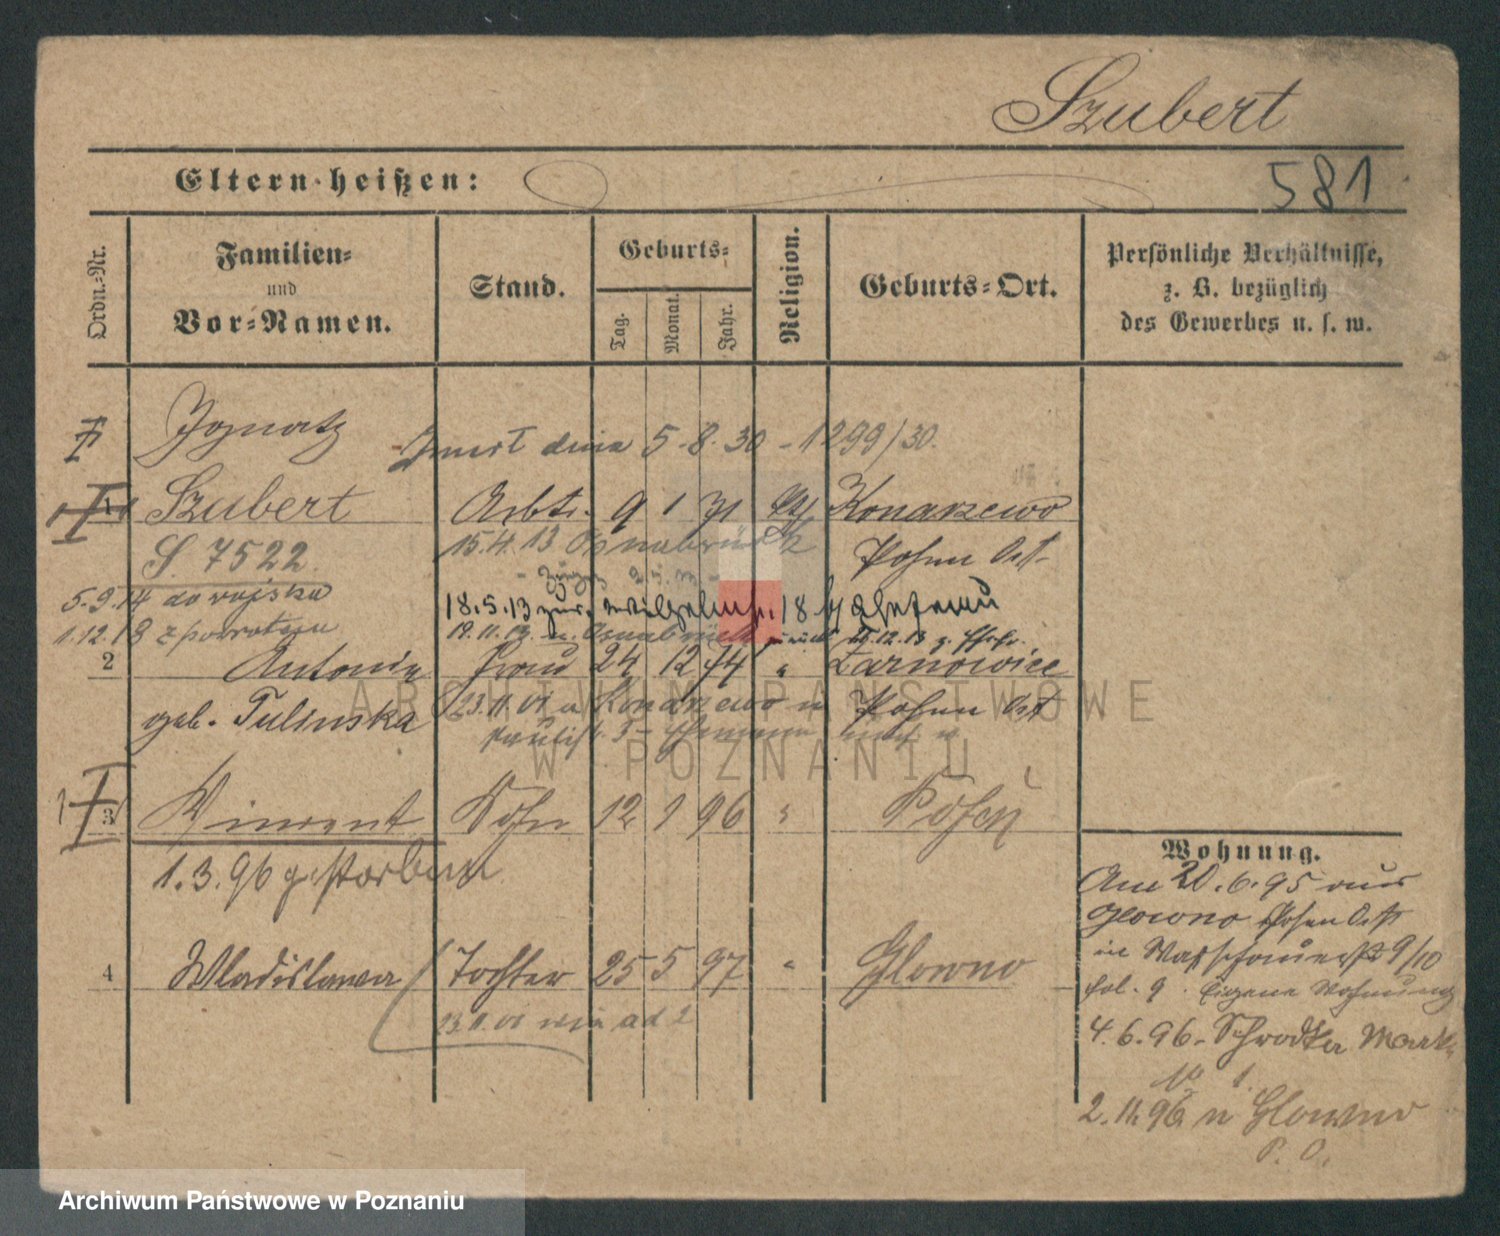 Szubert
Eltern heißen:
581
Ordn.-Nr.
Familien-
und
Vor-Namen.
Stand.
Geburts-
Tag.
Monat.
Jahr.
Religion.
Geburts-Ort.
Persönliche Verhältnisse,
z. B. bezüglich
des Gewerbes u. s. w.
Ignatz
dnia 5.8.30 - 1299/30.
1 Szubert Arbtr. 9 1 71 Konarzewo
S. 7522
15.4.13 Osnabrück
Posen Ost
5.9.14 do wojska
18.5.13 zur. 18
1.12.18 z powrotem
19.11.13 Osnabrück
2 Antonie Frau 24 12 74 " Zarnowice
geb. Tulinska
23.11.01 Konarzewo
Posen Ost
3 Vincent Sohn 12 1 96 " Posen
1.3.96 gestorben
4 Wladislawa Tochter 25 5 97 " Glowno
23.11.01 ad 2
Wohnung.
Am 20.6.95 aus
Glowno Posen Ost
in 9/10
fol. 9. Eigene Wohnung
4.6.96. Schrodka Markt
No 1.
2.11.96 n Glowno
P. O.
ARCHIWUM PAŃSTWOWE
W POZNANIU
Archiwum Państwowe w Poznaniu